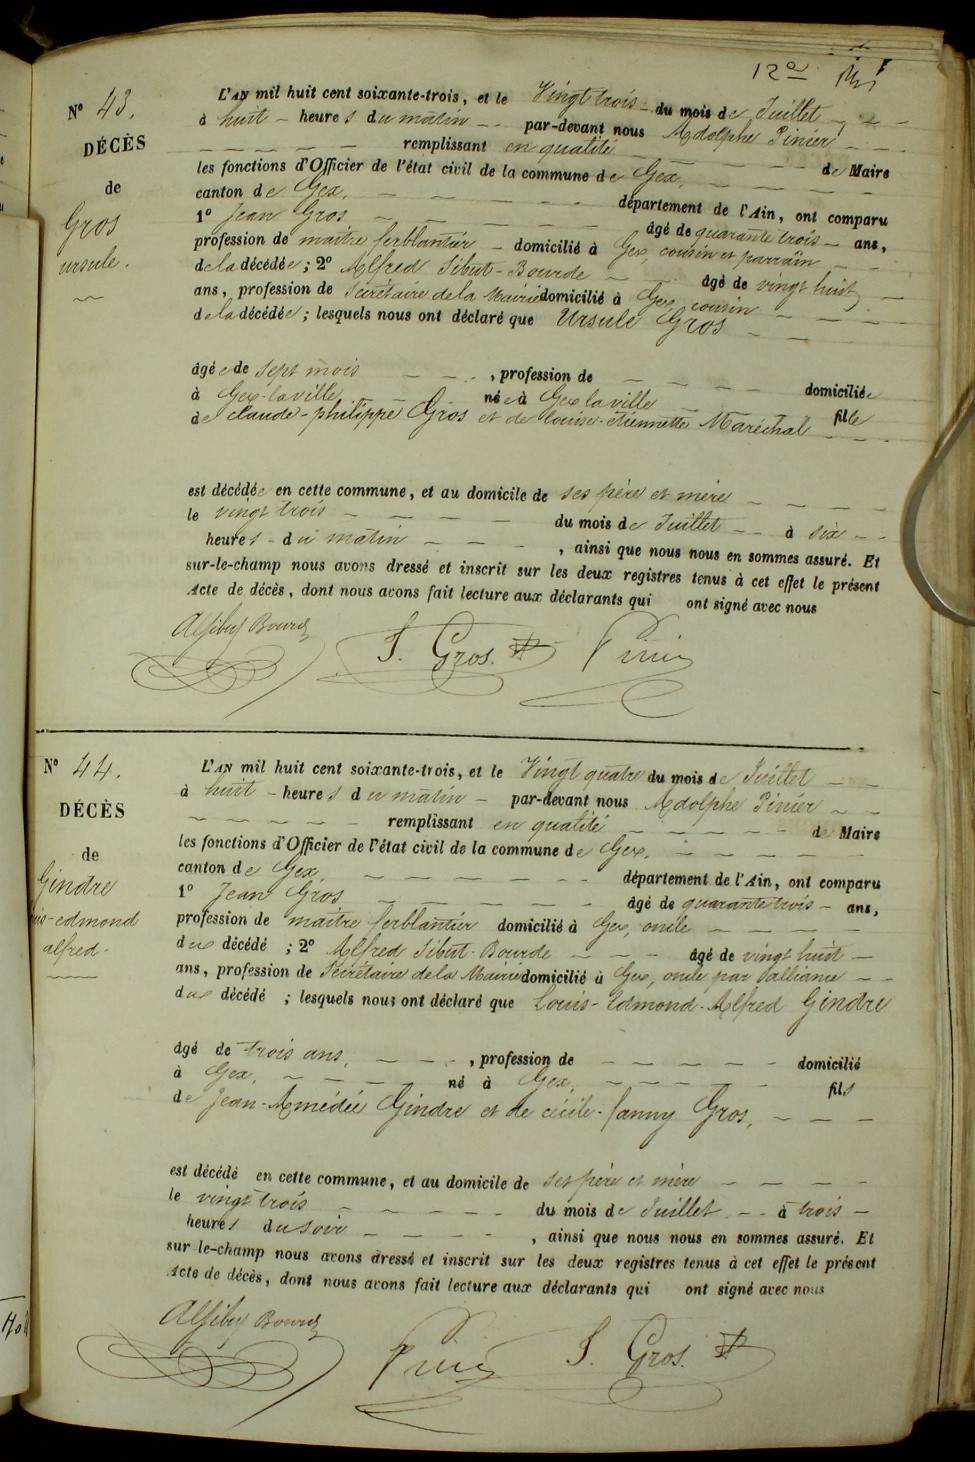 12e
N° 43.
DÉCÈS
de
Gros
ursule.
L'AN mil huit cent soixante-trois, et le Vingt trois du mois de Juillet
à huit heures du matin par-devant nous Adolphe Pinier
remplissant en qualité de Maire
les fonctions d'Officier de l'état civil de la commune de Gex,
canton de Gex, département de l'Ain, ont comparu
1° Jean Gros âgé de quarante trois ans,
profession de maître ferblantier domicilié à Gex, cousin et parrain
de la décédée; 2° Alfred Sibut-Bourde âgé de vingt huit
ans, profession de Secrétaire de la Mairie domicilié à Gex, cousin
de la décédée; lesquels nous ont déclaré que Ursule Gros
âgée de sept mois, profession de domiciliée
à Gex-la-ville née à Gex la ville fille
de Claude-philippe Gros et de louise-étiennette Maréchal
est décédée en cette commune, et au domicile de ses père et mère
le vingt trois du mois de Juillet à six
heures du matin, ainsi que nous nous en sommes assuré. Et
sur-le-champ nous avons dressé et inscrit sur les deux registres tenus à cet effet le présent
Acte de décès, dont nous avons fait lecture aux déclarants qui ont signé avec nous
A Sibut Bourde J. Gros. Pinier
N° 44.
DÉCÈS
de
Gindre
uis-edmond
alfred.
L'AN mil huit cent soixante-trois, et le Vingt quatre du mois de Juillet
à huit heures du matin par-devant nous Adolphe Pinier
remplissant en qualité de Maire
les fonctions d'Officier de l'état civil de la commune de Gex,
canton de Gex, département de l'Ain, ont comparu
1° Jean Gros âgé de quarante trois ans,
profession de maître ferblantier domicilié à Gex, oncle
du décédé; 2° Alfred Sibut-Bourde âgé de vingt huit
ans, profession de Secrétaire de la Mairie domicilié à Gex, oncle par alliance
du décédé; lesquels nous ont déclaré que Louis-Edmond-Alfred Gindre
âgé de trois ans, profession de domicilié
à Gex, né à Gex, fils
de Jean-Amédée Gindre et de cécile-fanny Gros,
est décédé en cette commune, et au domicile de ses père et mère
le vingt trois du mois de Juillet à trois
heures du soir, ainsi que nous nous en sommes assuré. Et
sur le-champ nous avons dressé et inscrit sur les deux registres tenus à cet effet le présent
Acte de décès, dont nous avons fait lecture aux déclarants qui ont signé avec nous
A Sibut Bourde Pinier J. Gros.